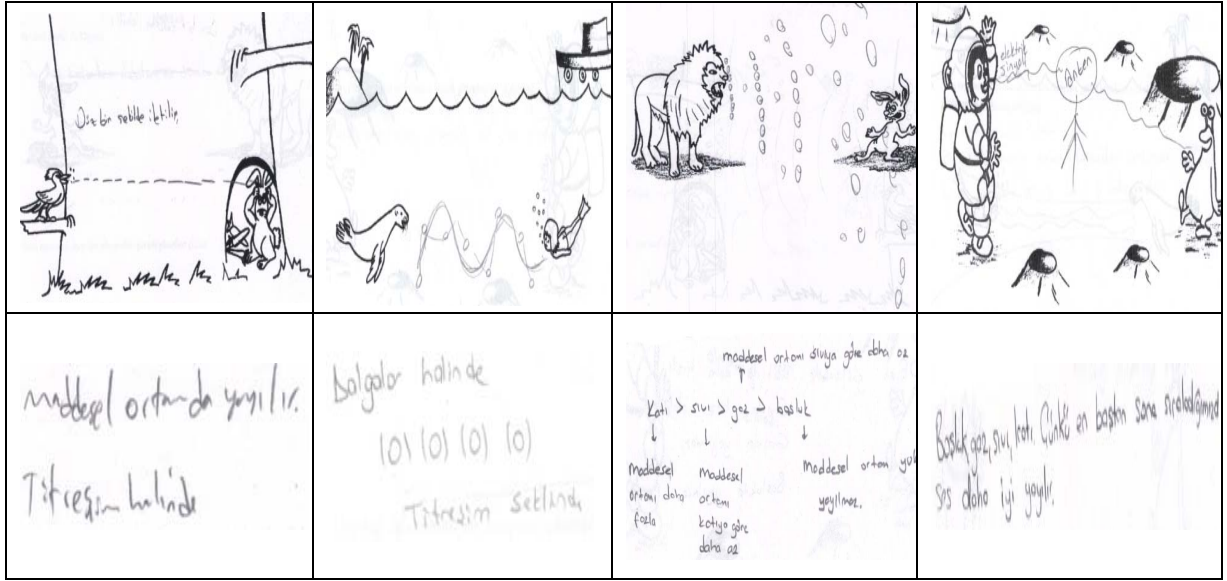 Düz bir şekilde iletilir.
elektrik
sinyali
Anten
maddesel ortamda yayılır.
Titreşim halinde
Dalgalar halinde
(0) (0) (0) (0)
Titreşim şeklinde
maddesel ortamı sıvıya göre daha az
Katı > sıvı > gaz > boşluk
maddesel
ortamı daha
fazla
maddesel
ortamı
katıya göre
daha az
maddesel ortam yok
yayılmaz.
Boşluk, gaz, sıvı, katı. Çünkü en baştan sona sıraladığımızda
ses daha iyi yayılır.